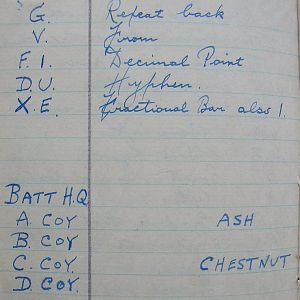 G. Repeat back
V. From
F. I. Decimal Point
D.U. Hyphen.
X.E. Fractional Bar also 1.
BATT H.Q
A. COY ASH
B. COY
C. COY. CHESTNUT
D. COY.